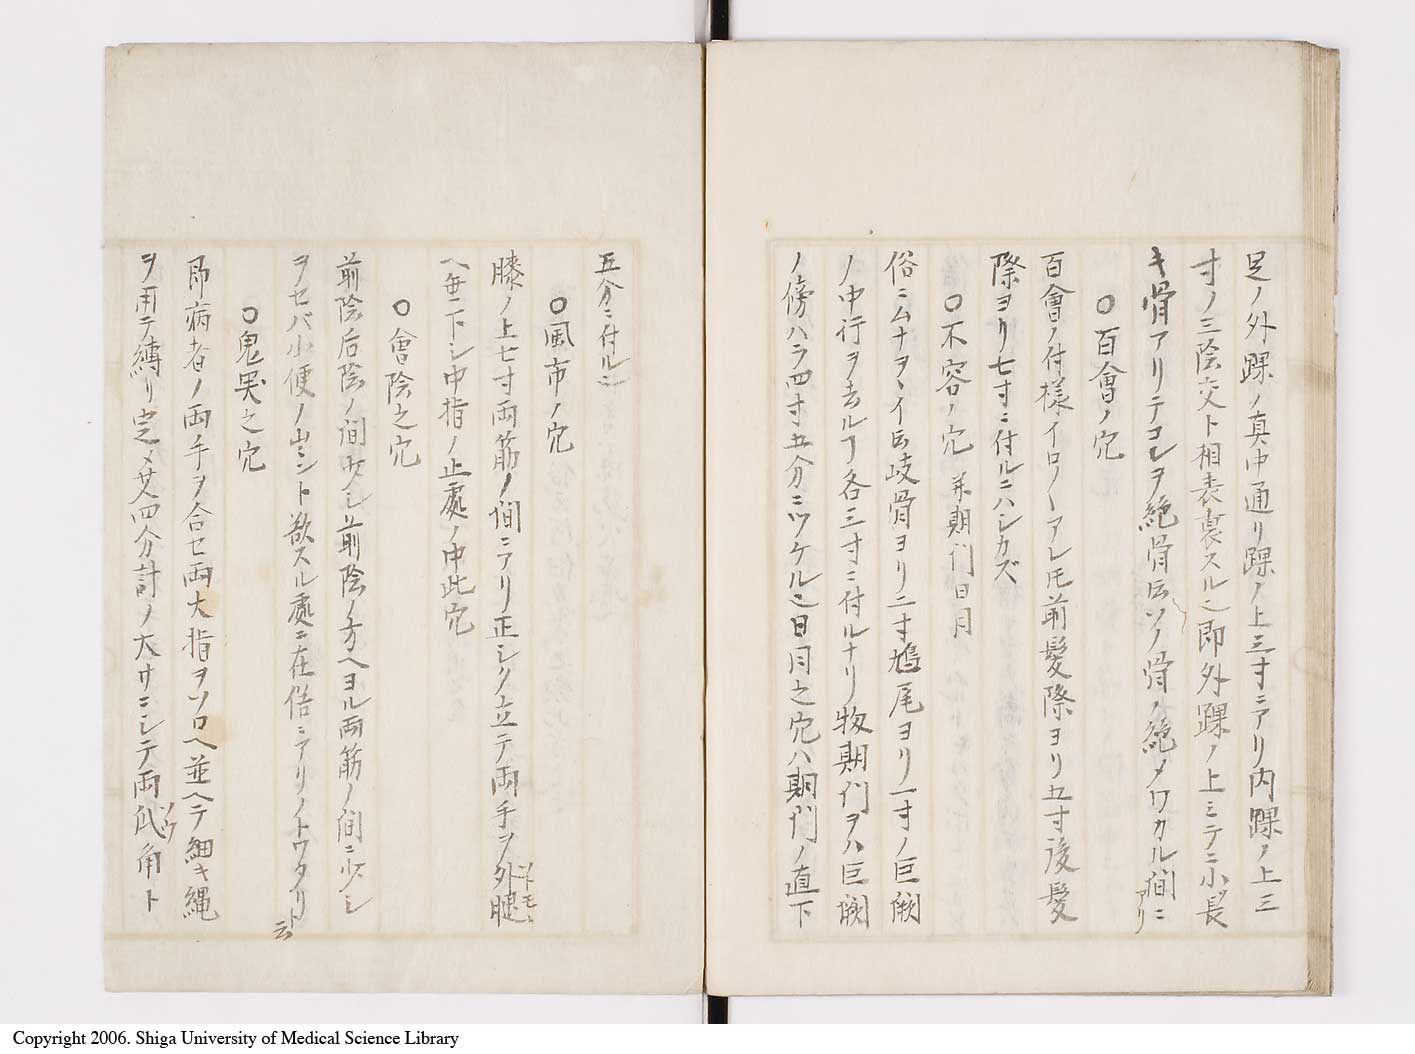 足ノ外踝ノ真中通リ踝ノ上三寸ニアリ内踝ノ上三
寸ノ三陰交ト相表裏スル也即外踝ノ上ミテニ小長
キ骨アリテコレヲ絶骨云ソノ骨ノ絶メワカル間ニアリ
○百會ノ穴
百會ノ付様イロ〱アレ𪜈前髪際ヨリ五寸後髪
際ヨリ七寸ニ付ルニハシカズ
○不容ノ穴 并期門日月
俗ニムナヲヽイ云岐骨ヨリ二寸鳩尾ヨリ一寸ノ巨闕
ノ中行ヲ去ルヿ各三寸ニ付ルナリ扨期門ヲハ巨闕
ノ傍ハラ四寸五分ニツケル也日月之穴ハ期門ノ直下
五分ニ付ル也
○風市ノ穴
膝ノ上七寸両筋ノ間ニアリ正シク立テ両手ヲ外腿
ヘ垂下シ中指ノ止處ノ中此穴
○會陰之穴
前陰后陰ノ間少シ前陰ノ方ヘヨル両筋ノ間ニ少シ
ヲセバ小便ノ出ント欲スル處ニ在俗ニアリノトワタリト云
○鬼哭之穴
即病者ノ両手ヲ合セ両大指ヲソロヘ並ヘテ細キ縄
ヲ用テ縛リ定メ艾四分計ノ大サニシテ両爪角ト